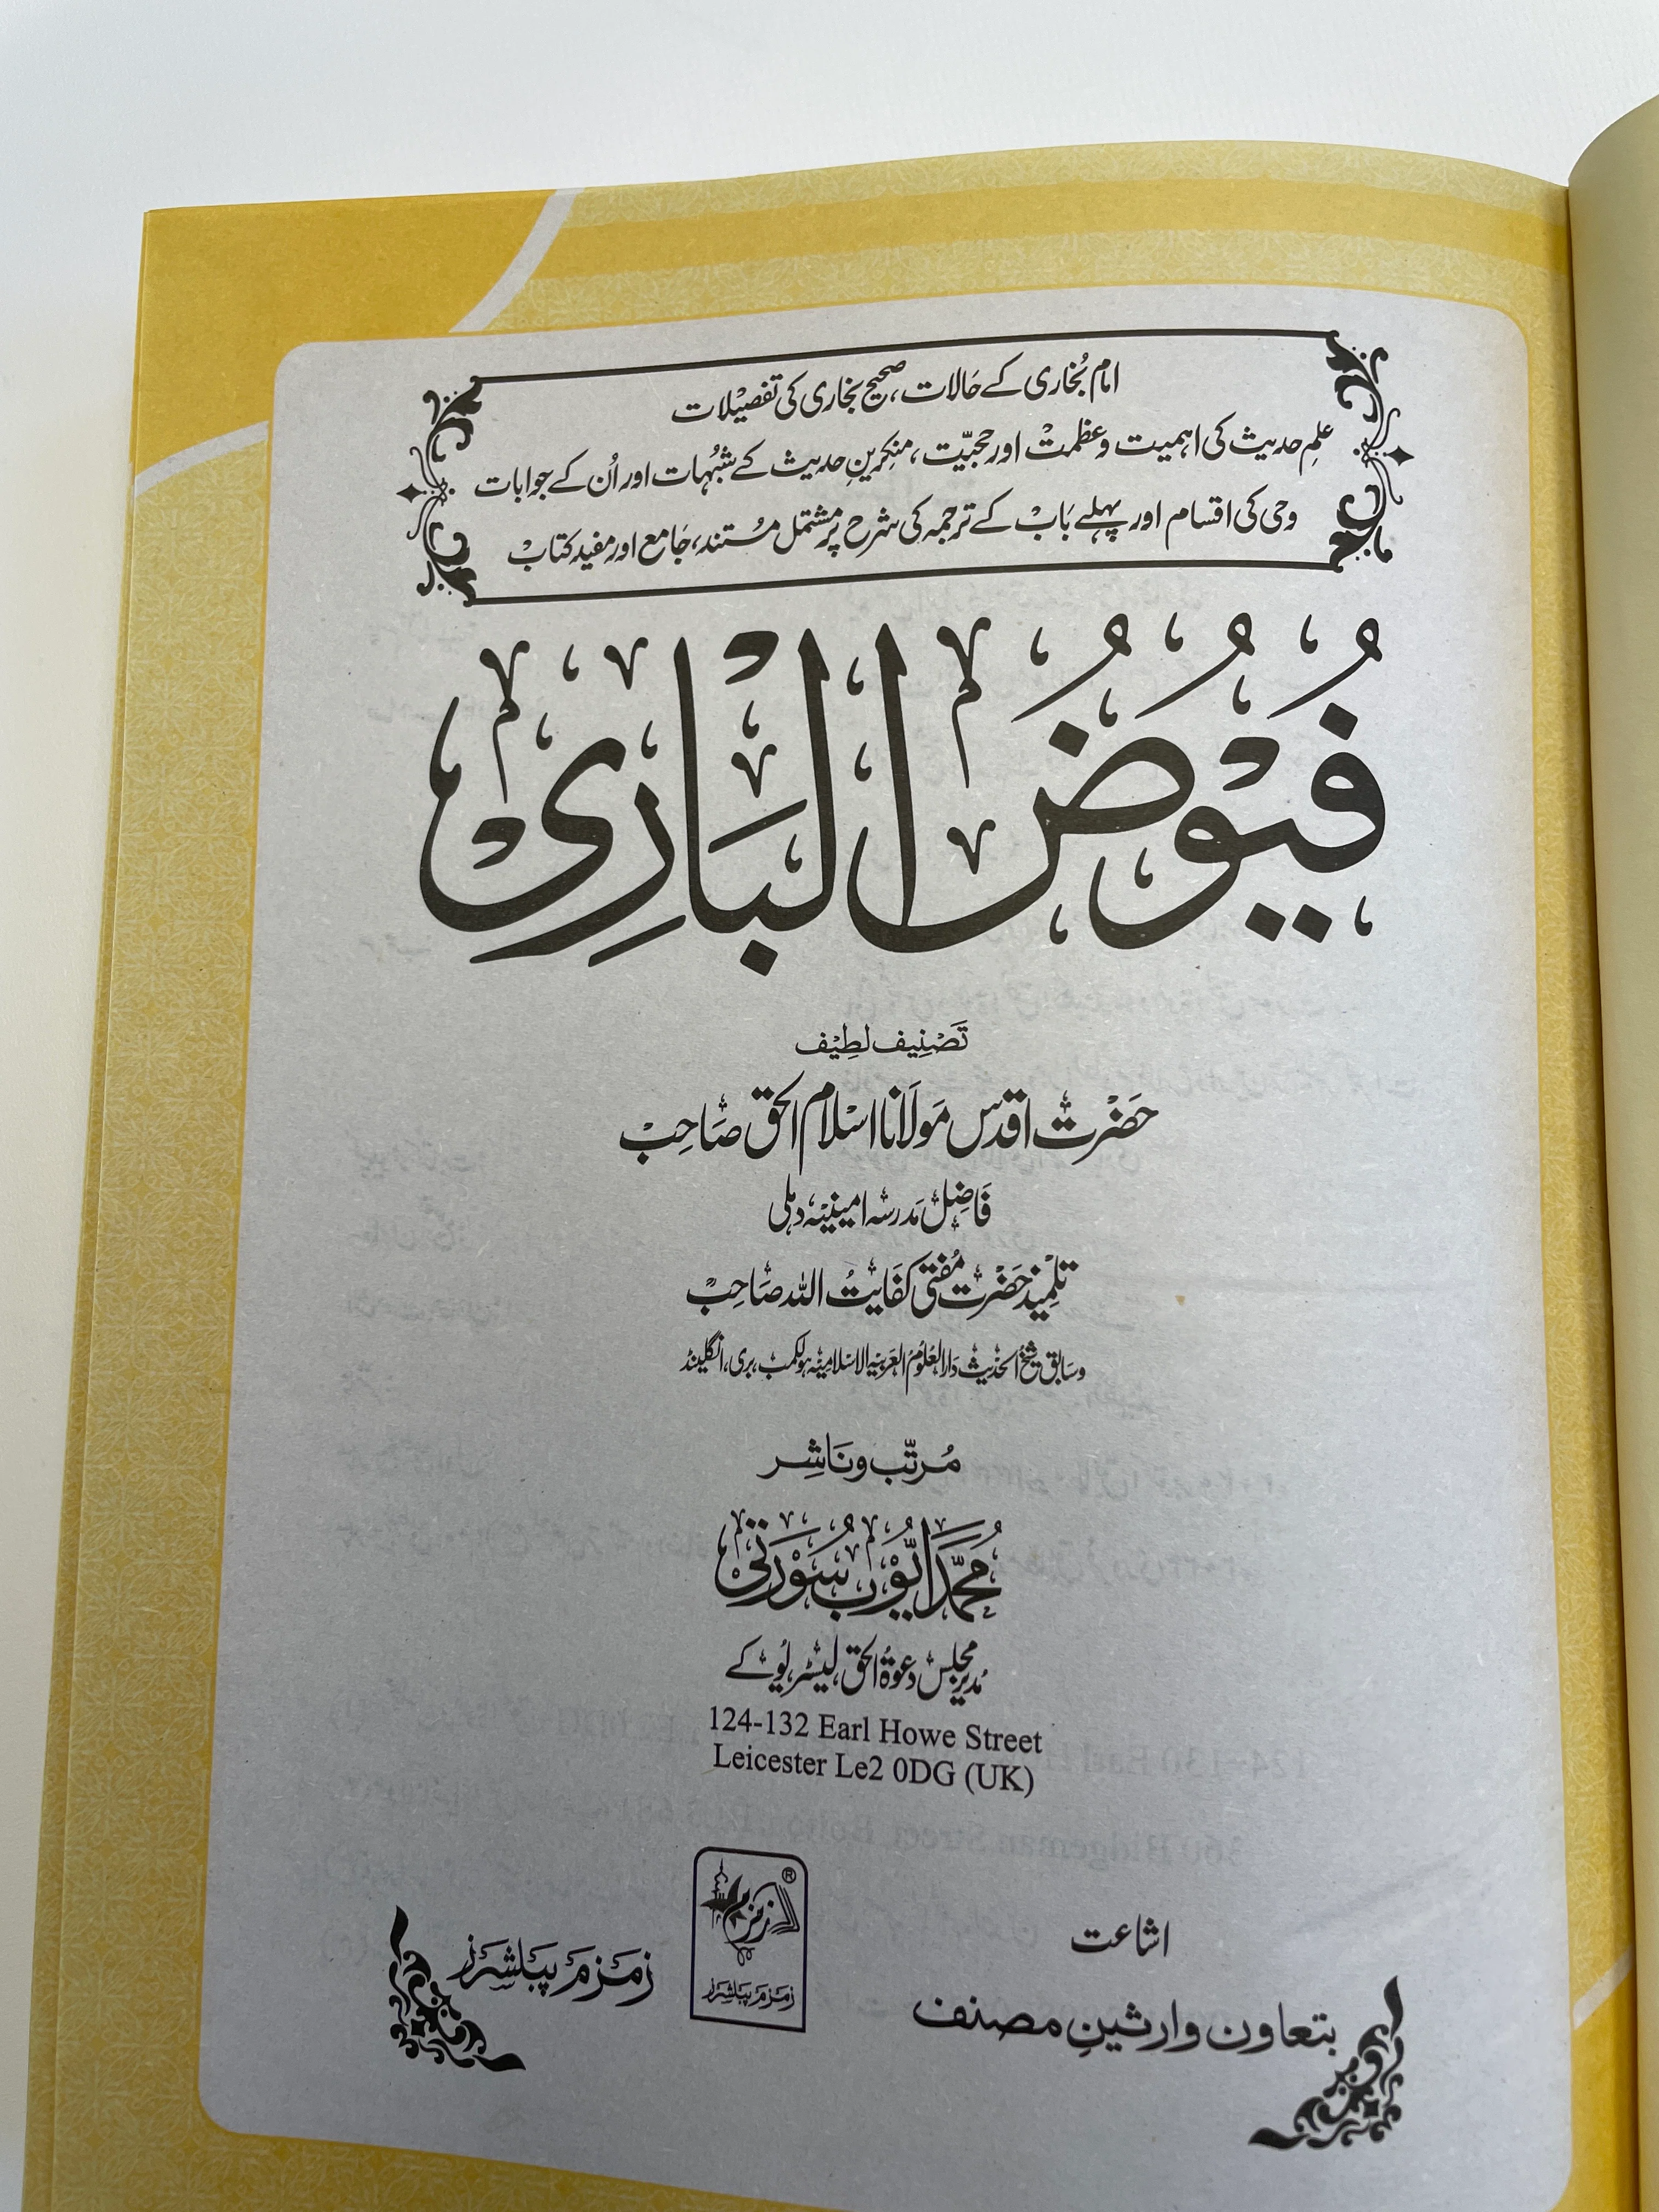 امام بُخاری کے حَالات، صحیح بخاری کی تفصیْلات
علمِ حدیث کی اہمیت وعظمتْ اور حجیّت، منکرینِ حدیث کے شبُہات اور اُن کے جوابات
وحی کی اقسام اور پہلے بَابْ کے ترجمہ کی شرح پر مشتمل مسُتند، جَامع اور مفید کتابْ
فُيُوضُ الْبَارِی
تَصْنِیف لطِیْف
حَضْرت اقدس مَولَانا اسْلام الحق صَاحِبْ
فَاضِل مَدرسہ امینیہ دہلی
تلْمِیذ حَضْرت مُفتی کفَایتُ اللہ صَاحِبْ
وسَابق شیخ الحَدیث دَارالعُلوُم العَربیہ الاسْلامیہ ہولکمب، بری، انگلینڈ
مُرتّب و نَاشِر
مُحَمَّد ایُّوْب سُوْرَتِی
مُدیر مجلس دعوۃُ الحق لیسٹر یُوکے
124-132 Earl Howe Street
Leicester Le2 0DG (UK)
اشاعت
بتعاون وارثینِ مصنف
زمزم
®
زمزم پبلشرز
زمزم پبلشرز